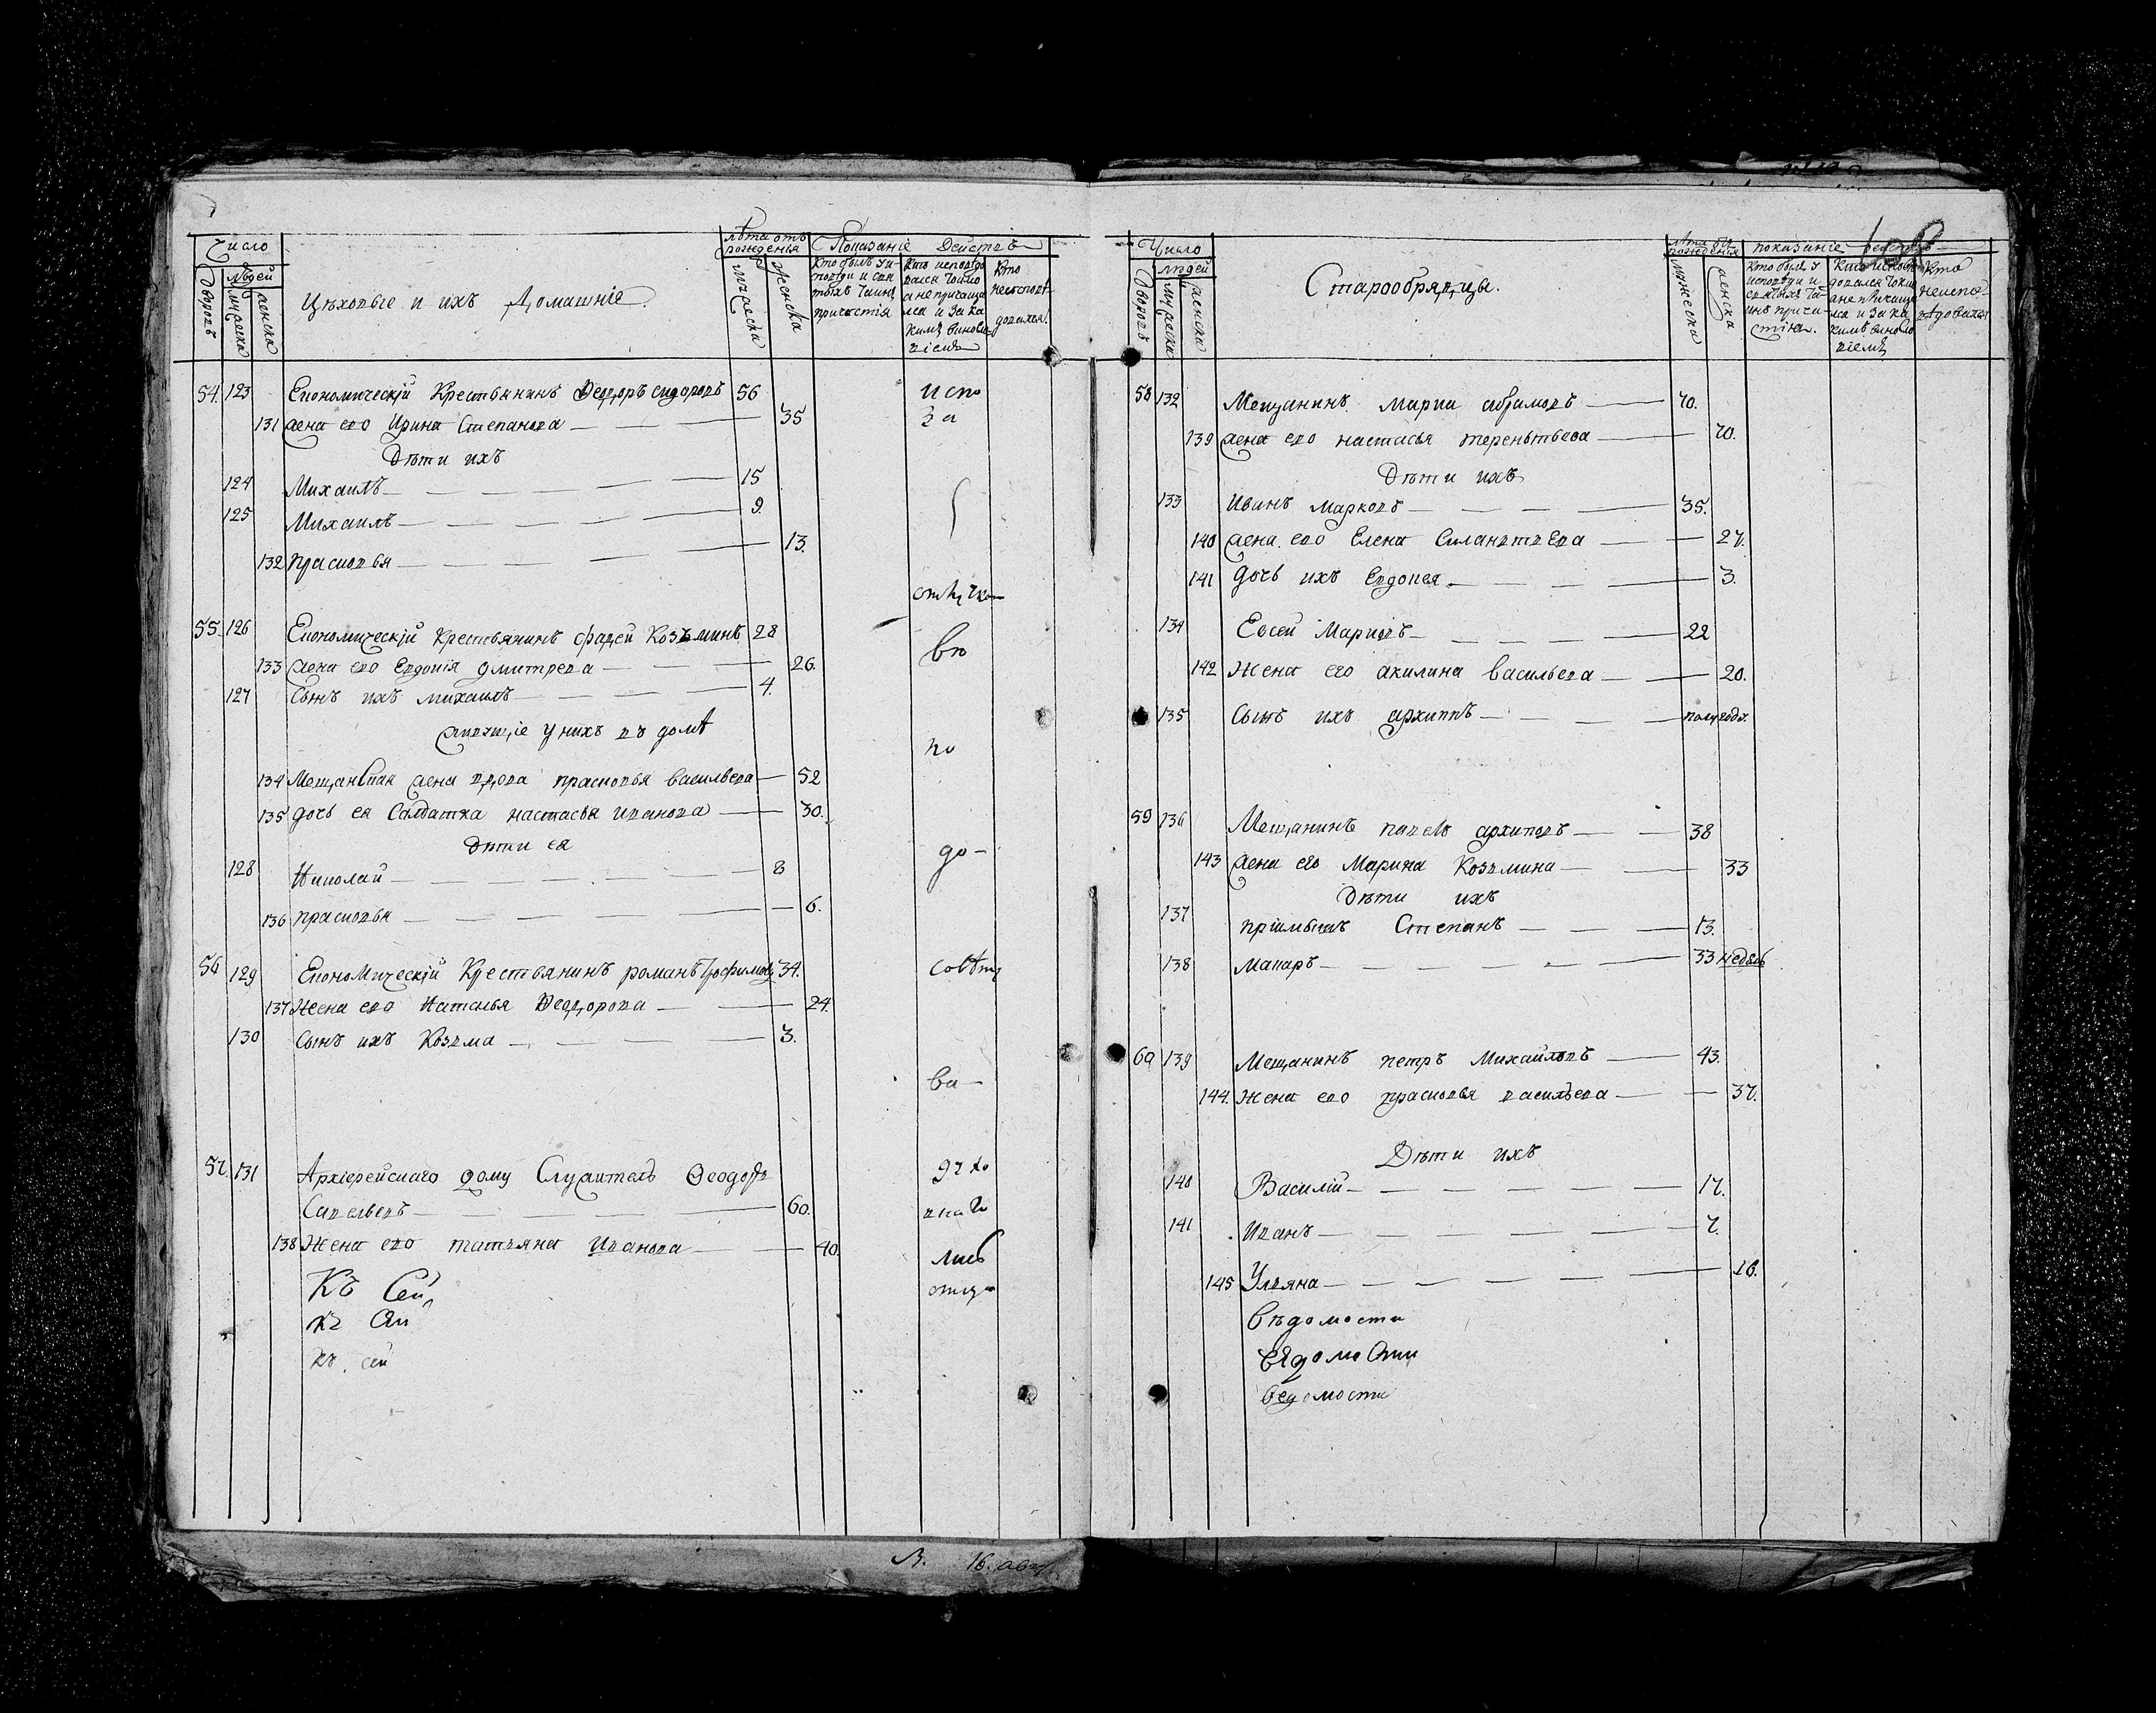 Число
Дворовъ
людей
мужеска
женска
Цѣховые и ихъ Домашніе.
лѣта отъ рожденья
мужеска
женска
Показаніе Действъ
Кто былъ у исповѣди и святыхъ таинъ причастія
Кто исповѣдовался токмо а не причащался и за какимъ виносло
віемъ
Кто неисповѣдовался.
54. 123 Економическій Крестьянинъ Ѳедоръ сидоровъ 56
131 жена его Ирина Степанова — — — 35
Дѣти ихъ
124 Михаилъ — — — — 15
125 Михаилъ — — — — 9.
132 прасковья — — — — 13.
55. 126 Економическій крестьянинъ фадей Козьминъ 28
133 жена его Евдокія дмитрева — — — 26.
127 Сынъ ихъ михаилъ — — — 4.
живущіе у нихъ въ домѣ
134 Мещанская жена вдова прасковья васильева — 52
135 дочь ея Салдатка настасья иванова — 30.
Дѣти ея
128 Николай — — — — 8
136 прасковья — — — — 6.
56 129 Економическій Крестьянинъ романъ трофимовъ 34.
137 Жена его Наталья Ѳедорова — — 24.
130 Сынъ ихъ Козьма — — — 3.
57. 131 Архіерейскаго дому Служитель Ѳеодоръ
Савельевъ — — — — 60.
138 Жена его татьяна Иванова — — 40.
Къ Сей
къ Сей
къ сей
испо
за
по
до-
ва-
В. 16. авгу
Число
Дворовъ
людей
мужеска
женска
Старообрядцы.
мужеска
женска
показаніе
Кто былъ у исповѣди и святыхъ таинъ причастія.
Кто неисповѣдовался
58 132 Мещанинъ Марка абрамовъ — 70.
139 жена его настасья терентьева — 70.
Дѣти ихъ
133 Иванъ марковъ — — — 35.
140 жена его Елена Силантьева — — 27.
141 дочь ихъ Евдокея — — — 3.
134 Евсей Марковъ — — — 22
142 Жена его акилина васильева — — 20.
135 Сынъ ихъ архиппъ — — — полугода.
59 136 Мещанинъ павелъ архиповъ — — 38
143 жена его Марина Козьмина — — 33
Дѣти ихъ
137 приимышъ Степанъ — — — 13.
138 Макаръ — — — — 33 недель
60 139 Мещанинъ петръ Михайловъ — 43.
144. Жена его прасковья васильева — — 37.
Дѣти ихъ
140 Василій — — — — 17.
141 Иванъ — — — — 7.
145 Ульяна — — — — 16.
Вѣдомости
вѣдомости
ведомости